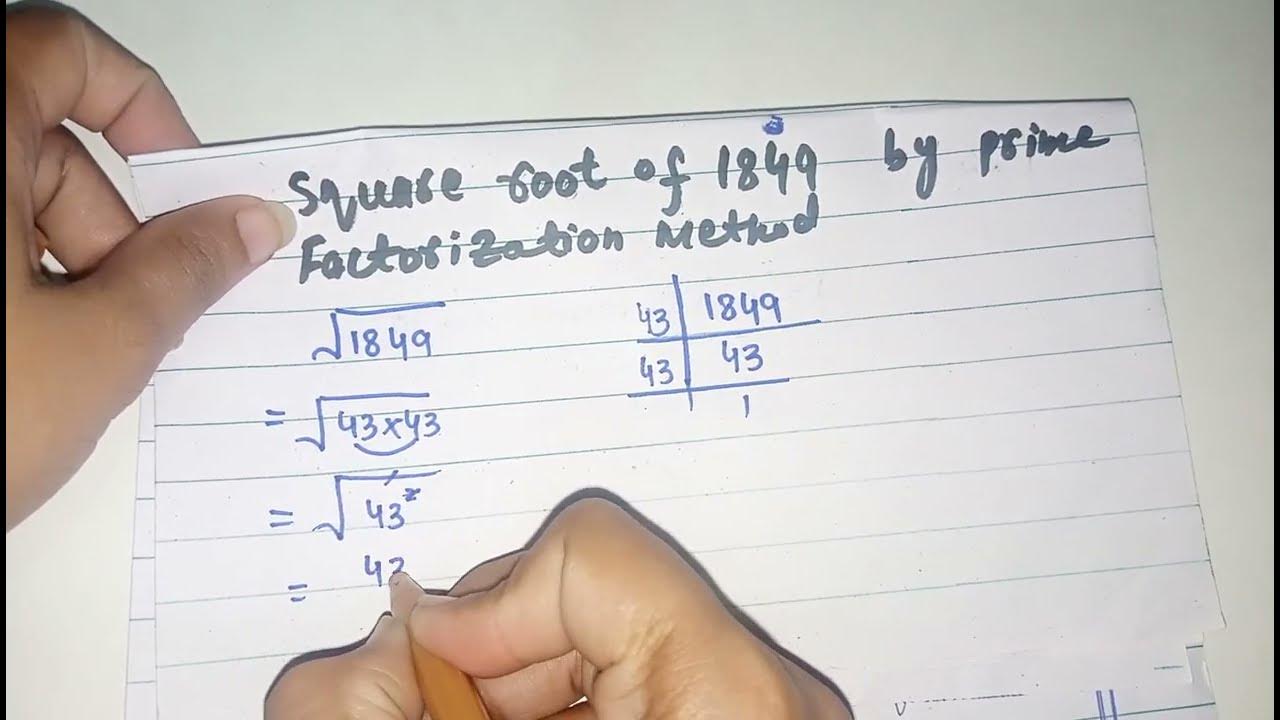 Square root of 1849 by prime
Factorization Method
√1849
= √43×43
= √43²
= 43
43 | 1849
43 | 43
| 1